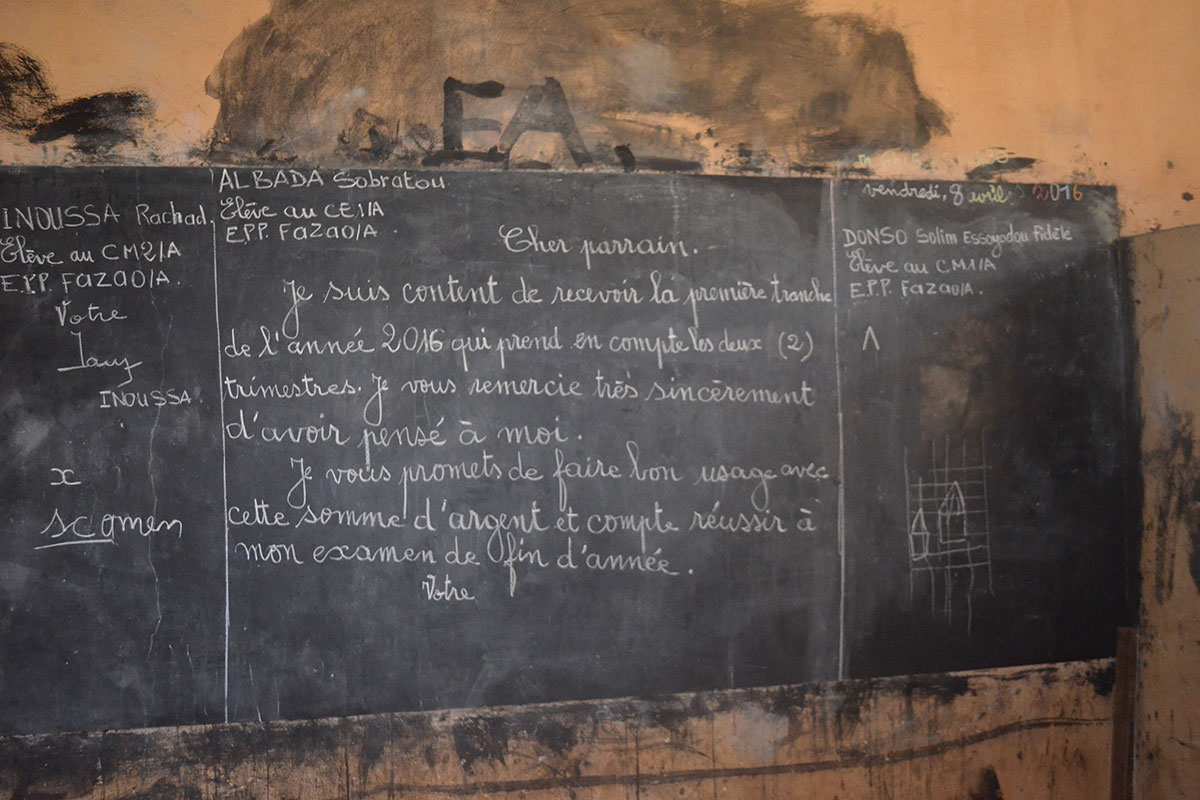 EA.
INOUSSA Rachad.
Elève au CM2/A
E.P.P. FAZAO/A.
Votre
INOUSSA.
x
scamen
ALBADA Sobratou
Elève au CE1/A
E.P.P. FAZAO/A.
Cher parrain.
Je suis content de recevoir la première tranche
de l'année 2016 qui prend en compte les deux (2)
trimestres. Je vous remercie très sincèrement
d'avoir pensé à moi.
Je vous promets de faire bon usage avec
cette somme d'argent et compte réussir à
mon examen de fin d'année.
Votre
vendredi, 8 avril 2016
DONSO Solim Essoyodou Fidèle
Elève au CM1/A
E.P.P. FAZAO/A.